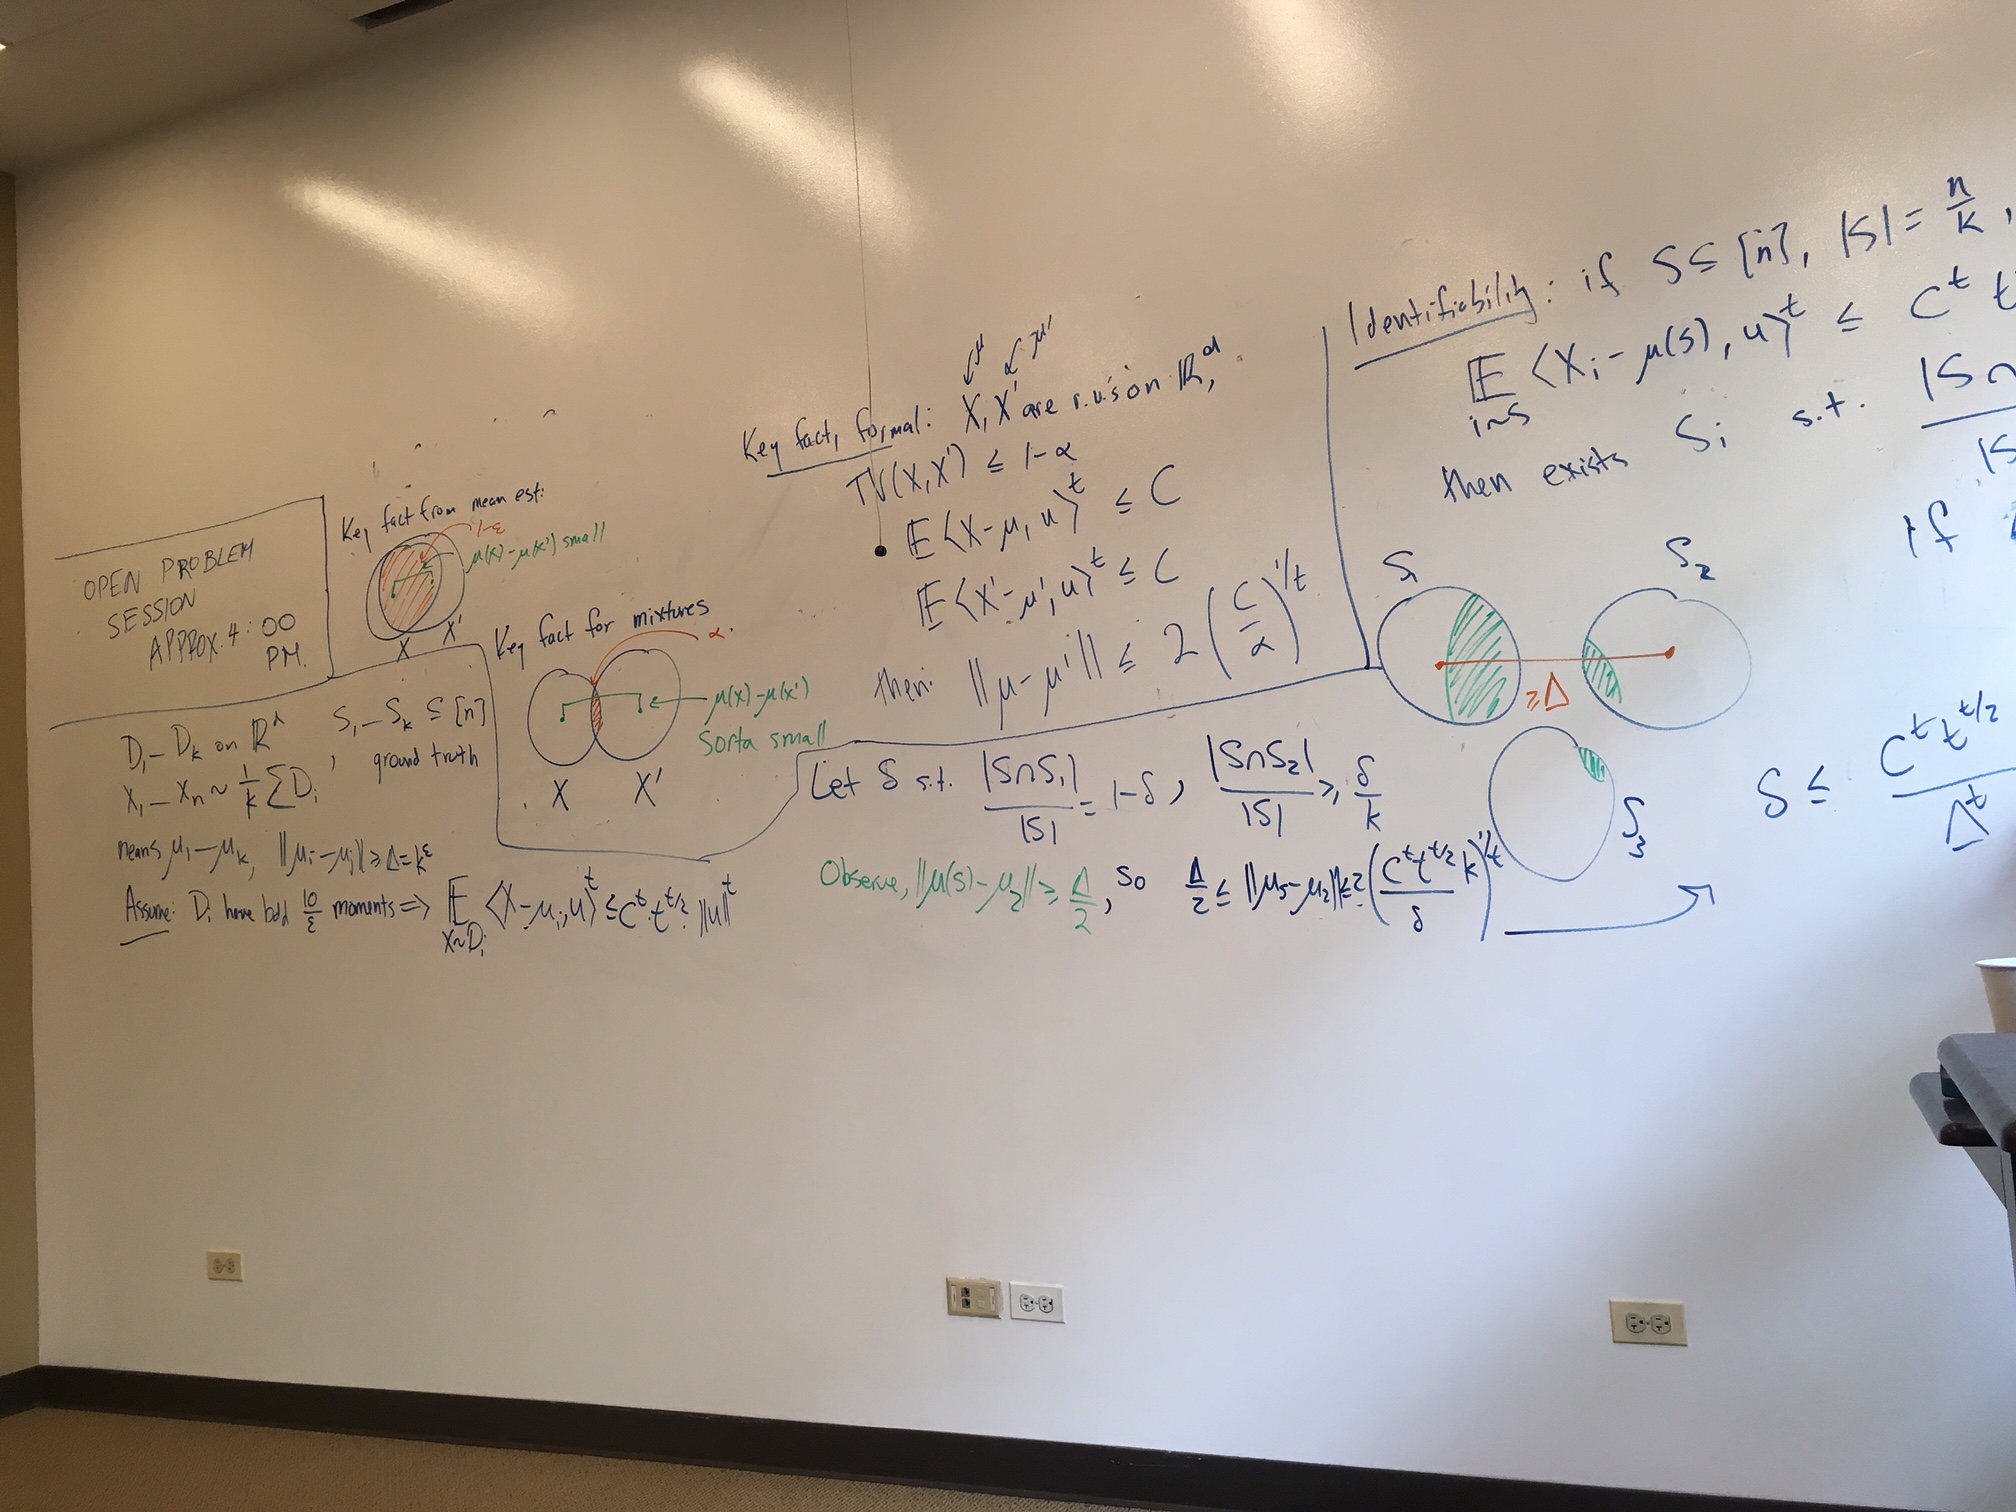 OPEN PROBLEM
SESSION
APPROX. 4:00
PM.
Key fact from mean est:
1-ε
μ(X)-μ(X') small
X X'
Key fact for mixtures
α.
μ(X)-μ(X')
Sorta small
X X'
D₁ – D_k on ℝ^d, S₁ – S_k ⊆ [n]
ground truth
X₁ – X_n ~ 1/k ∑ D_i
means μ₁ – μ_k, ||μ_i - μ_j|| ≥ Δ = k^ε
Assume: D_i have bdd 10/ε moments ⇒ 𝔼_{X~D_i} ⟨X-μ_i, u⟩^t ≤ C^t · t^{t/2} · ||u||^t
μ μ'
Key fact, formal: X, X' are r.v.'s on ℝ^d,
TV(X, X') ≤ 1-α
𝔼⟨X-μ, u⟩^t ≤ C
𝔼⟨X'-μ', u⟩^t ≤ C
then: ||μ-μ'|| ≤ 2(C/α)^{1/t}
Let δ s.t. |S∩S₁|/|S| = 1-δ, |S∩S₂|/|S| ≥ δ/k
Observe, ||μ(S)-μ₂|| ≥ Δ/2, so Δ/2 ≤ ||μ_S-μ₂|| ≤ 2(C^t t^{t/2} k/δ)^{1/t}
Identifiability: if S ⊆ [n], |S| = n/k,
𝔼_{i~S} ⟨X_i - μ(S), u⟩^t ≤ C^t t
then exists S_i s.t. |S∩
|S
if
S₁ S₂
≥Δ
S₃
δ ≤ C^t t^{t/2}
Δ^t